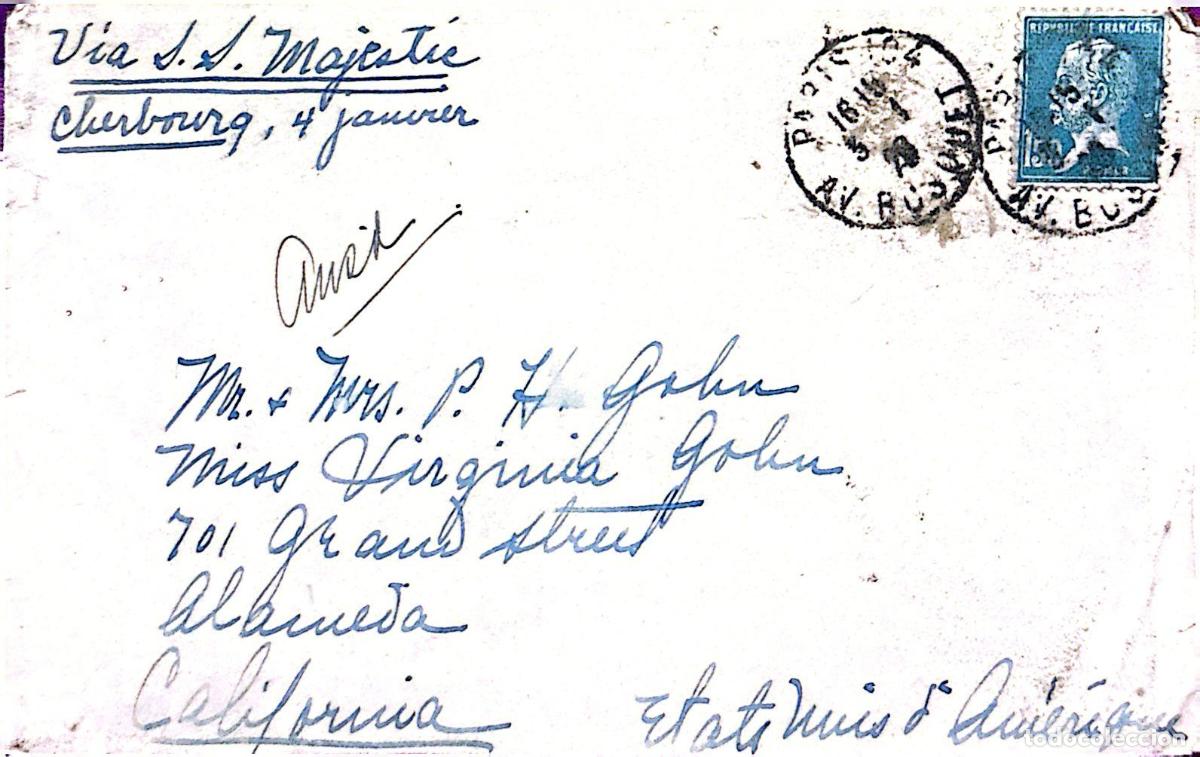 Via S. S. Majestic
Cherbourg, 4 janvier
REPUBLIQUE FRANÇAISE
PARIS 104
16 10
5 - 1
AV. BOSQUET
1F50
Ans'd
Mr. & Mrs. P. H. Gohn
Miss Virginia Gohn
701 Grand Street
Alameda
California
Etats Unis d'Amérique
todocoleccion